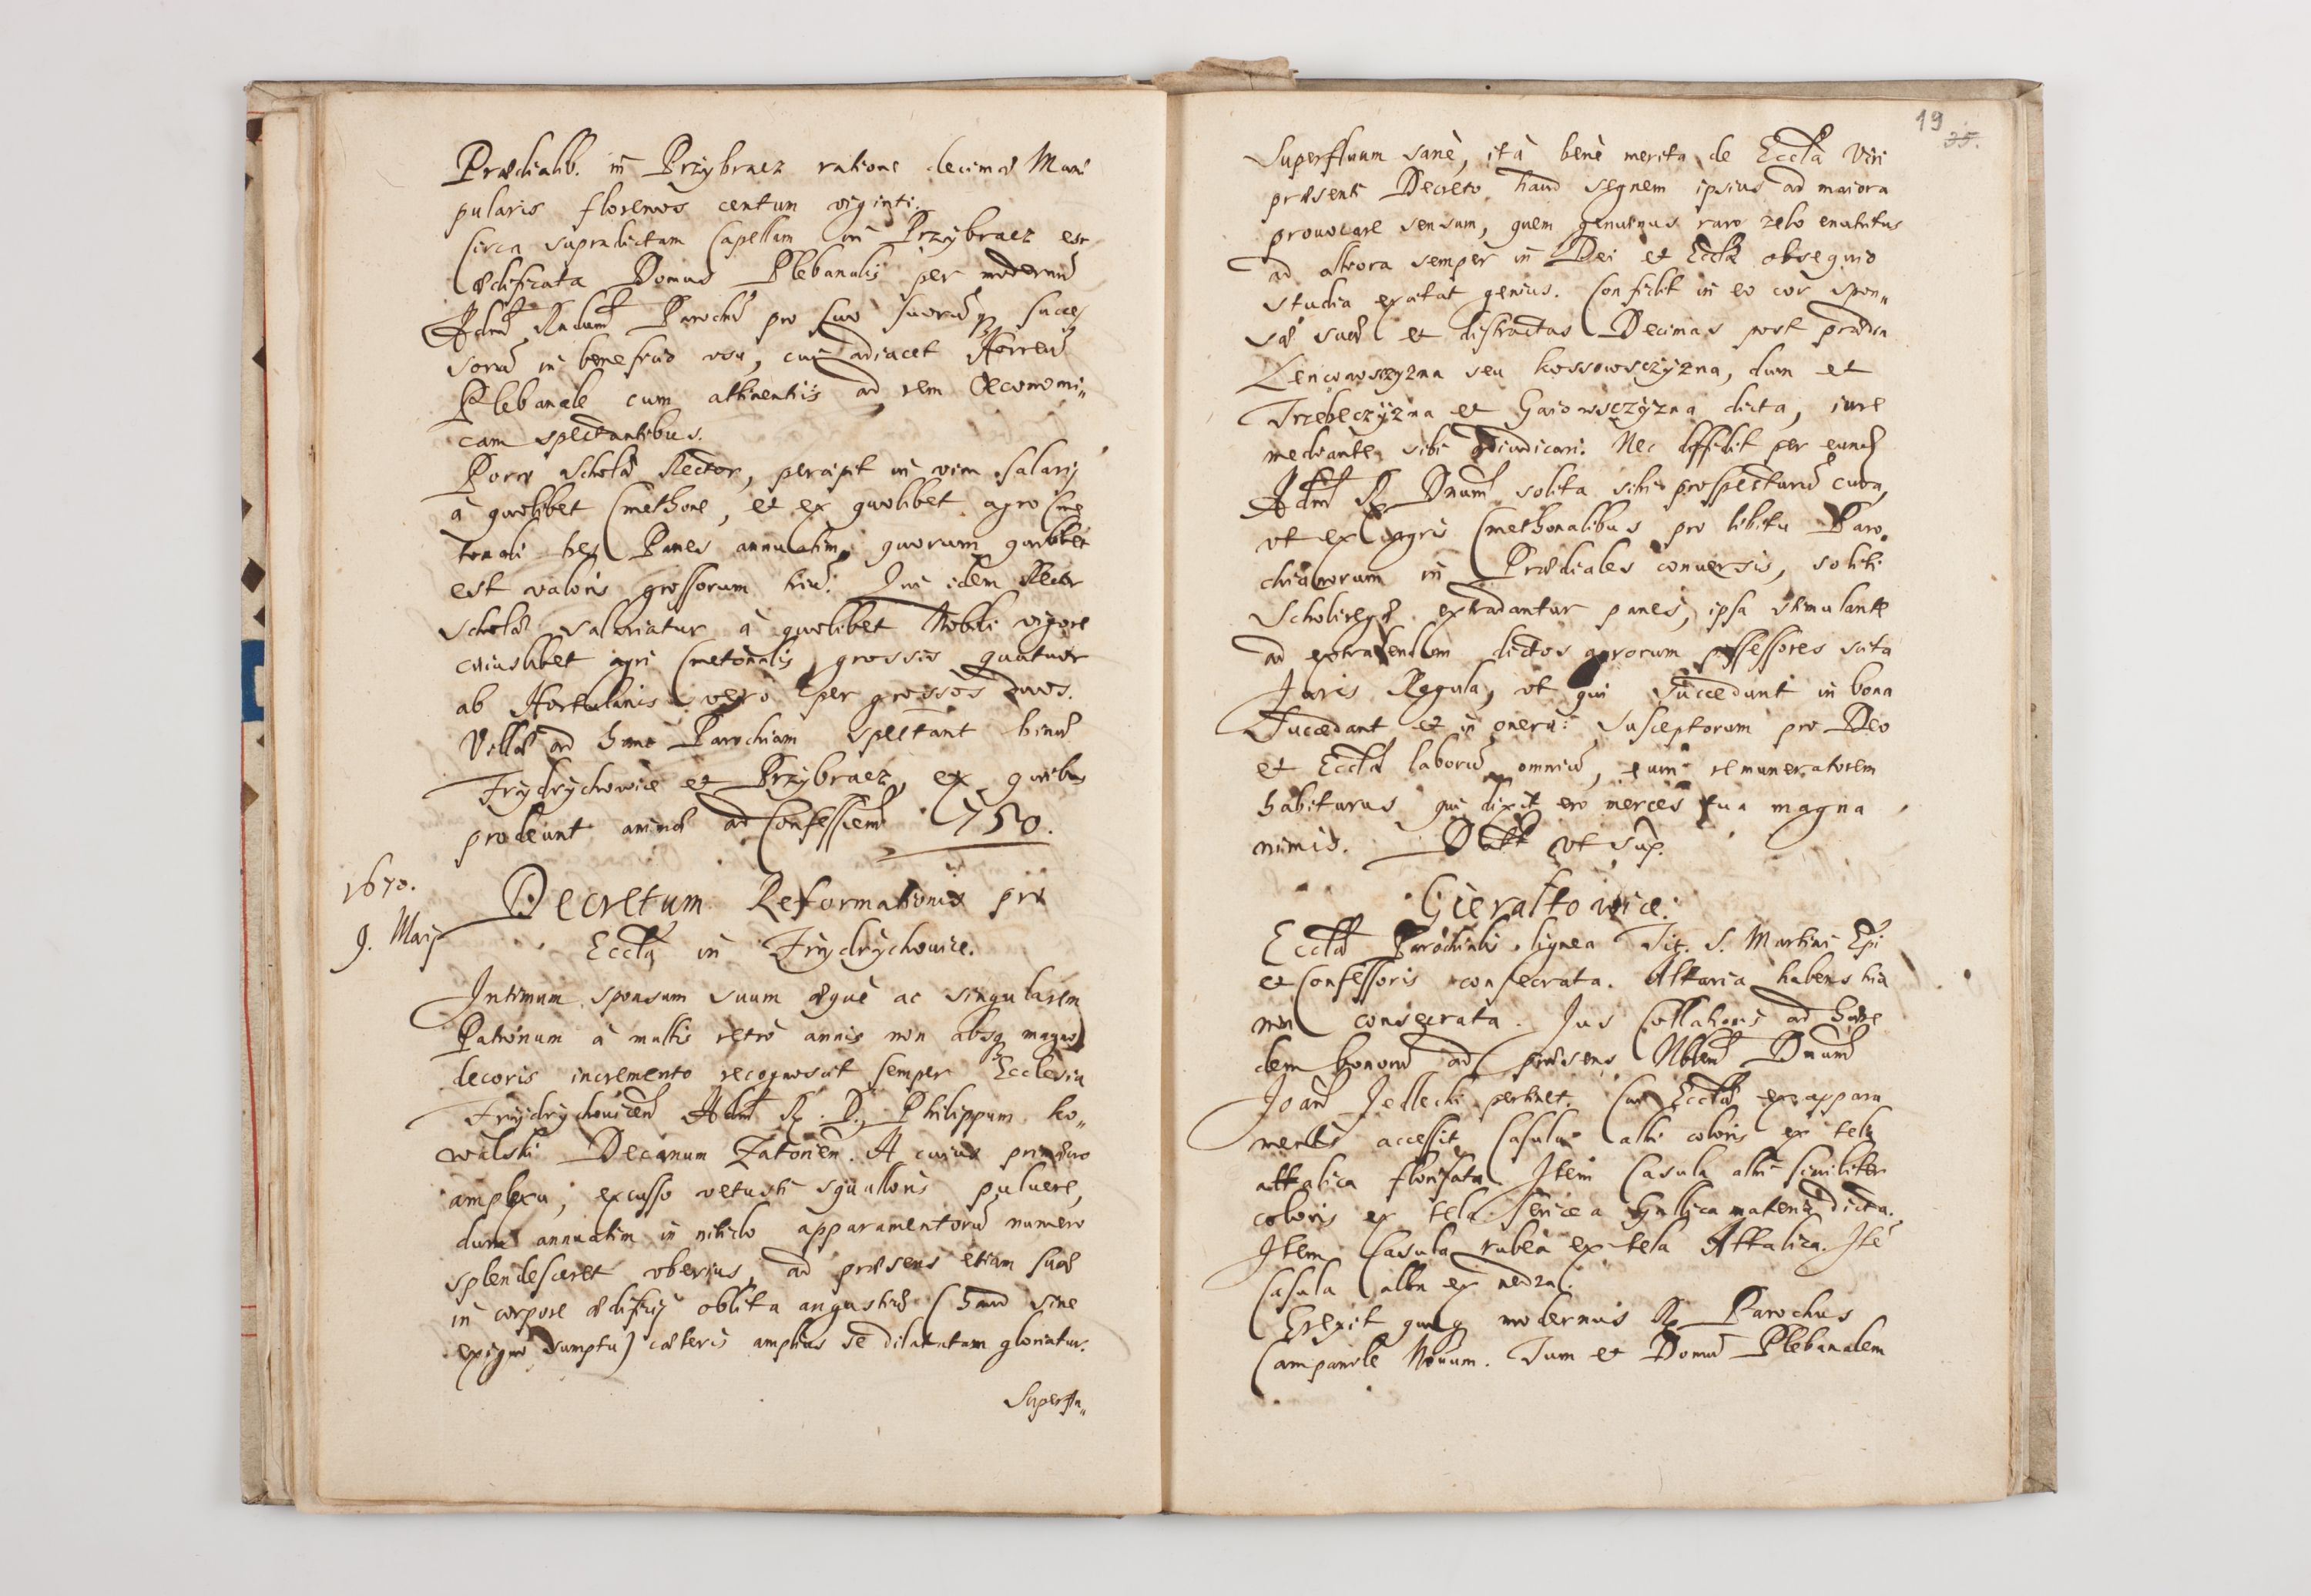 Prædialib. in Przybracz ratione decimæ Mani
pularis florenos centum viginti.
Circa supradictam Capellam in Przybracz est
ædificata Domus Plebanalis per modernū
Admm Rndum Parochū pro suo suorūq Succes
sorū in beneficio usu, cui adiacet Horreū
Plebanale cum attinentiis ad rem Oeconomi„
cam spectantibus.
Porro Scholæ Rector, percipit in vim Salarij
à quolibet Cmethone, et ex quolibet agro Cme
tonali tres Panes annuatim, quorum quilibet
est valoris grossorum triū. Qui idem Rector
Scholæ salariatur à quolibet Nobili vigore
cuiuslibet agri Cmetonalis, grossis quatuor
ab Hortulanis vero per grossos duos.
Villæ ad hanc Parochiam spectant binæ
Frydrychowice et Przybracz, ex quibus
prodeunt animæ ad Confessionē 750.
1670.
9. Maij
Decretum Reformationis pro
Eccla in Frydrychowice.
Intimum sponsum suum æque ac singularem
Patronum à multis retrò annis non absq magno
decoris incremento recognoscit semper Ecclesia
Frydrychovicen Admm R. D. Philippum Ko„
walski Decanum Zatorien. A cuius primævo
amplexu, excusso vetusti squalloris pulvere,
dum annuatim in nitido apparamentorū numero
splendesceret uberius, ad præsens etiam suæ
in corpore ædificij oblita angustiæ (haud sine
exiguo sumptu) cæteris amplius se dilatatam gloriatur.
Superflu„
19
35.
Superfluum sanè, ità benè merita de Eccla Viri
præsenti Decreto haud segnem ipsius ad maiora
provocare sensum, quem genuinus raro zelo enutritus
ad altiora semper in Dei et Ecclæ obsequio
studia excitat genius. Confidit in eo cor spon„
sæ suæ et distractas Decimas post prædia
Lencowsczyzna seu Kossowsczyzna, dum et
Trzebeczyzna et Gaiowsczyzna dicta, iure
mediante sibi adiudicari. Nec diffidit per eund
Admm R. Dnum solita sibi prospecturū cura,
ut ex agris Cmethonalibus pro libitu Paro„
chianorum in Prædiales conversis, soliti
Scholiregæ extradantur panes, ipsa stimulante
ad extradendum dictos agrorum possessores scita
Juris Regula, ut qui succedunt in bona
succedant et in onera: Susceptorum pro Deo
et Eccla laborū omniū, eum remuneratorem
habiturus qui dixit ero merces tua magna
nimis. Datt ut sup.
Gieraltowice.
Eccla Parochialis lignea Tit. S. Martini Epi
et Confessoris consecrata. Altaria habens tria
non consecrata. Jus Collationis ad hære
dem bonorū ad præsens Nblem Dnum
Joañ Jedlecki pertinet. Cui Ecclæ ex appara
mentis accessit Casula albi coloris ex tela
attalica florisata Item Casula albi similiter
coloris ex tela sericea Gallica materia dicta.
Item Casula rubea ex tela Attalica. Itē
Casula alba ex nedza.
Erexit quoq modernus R. Parochus
Campanile Novum. Tum et Domū Plebanalem